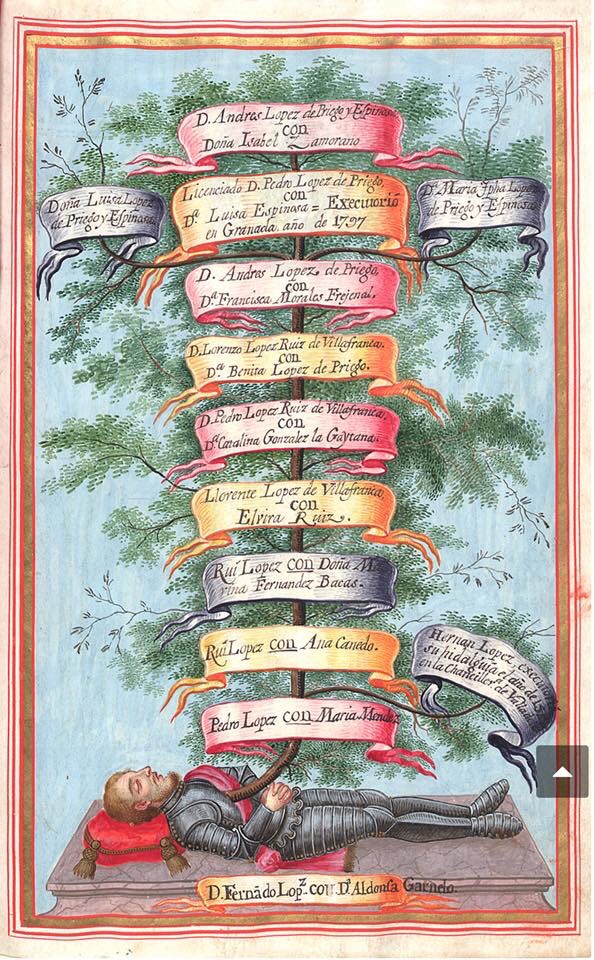 D. Andres Lopez de Priego y Espinosa
con
Doña Isabel Zamorano
Doña Luisa Lopez
de Priego y Espinosa
Licenciado D. Pedro Lopez de Priego,
con
Dª Luisa Espinosa = Executorió
en Granada. año de 1797
Dª Maria Jpha Lopez
de Priego y Espinosa
D. Andres Lopez. de Priego,
con
Dª Francisca Morales Frejenal.
D. Lorenzo Lopez Ruiz de Villafranca.
con
Dª Benita Lopez de Priego.
D. Pedro Lopez Ruiz de Villafranca.
con
Dª Catalina Gonzalez la Gaytana.
Llorente Lopez de Villafranca,
con
Elvira Ruiz.
Rui Lopez con Doña
Fernandez Bacas.
Rui Lopez con Ana Canedo.
Hernan Lopez
su hidalguia el año de
en la Chancilleria de
Pedro Lopez con Maria Mendez
D. Fernãdo Lopz. con Dª Aldonsa Garnelo.